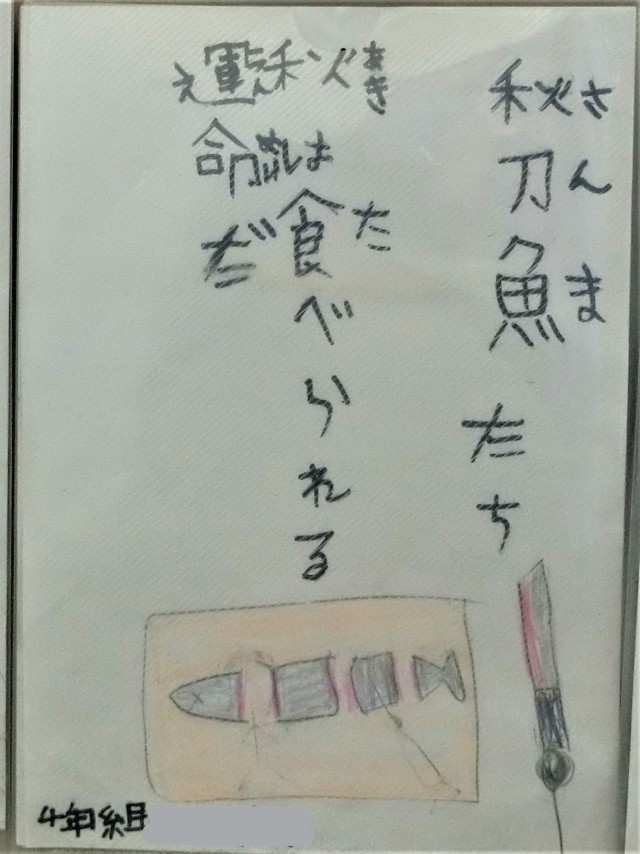 さんま
秋刀魚たち
あき た
秋は食べられる
運命だ
4年組